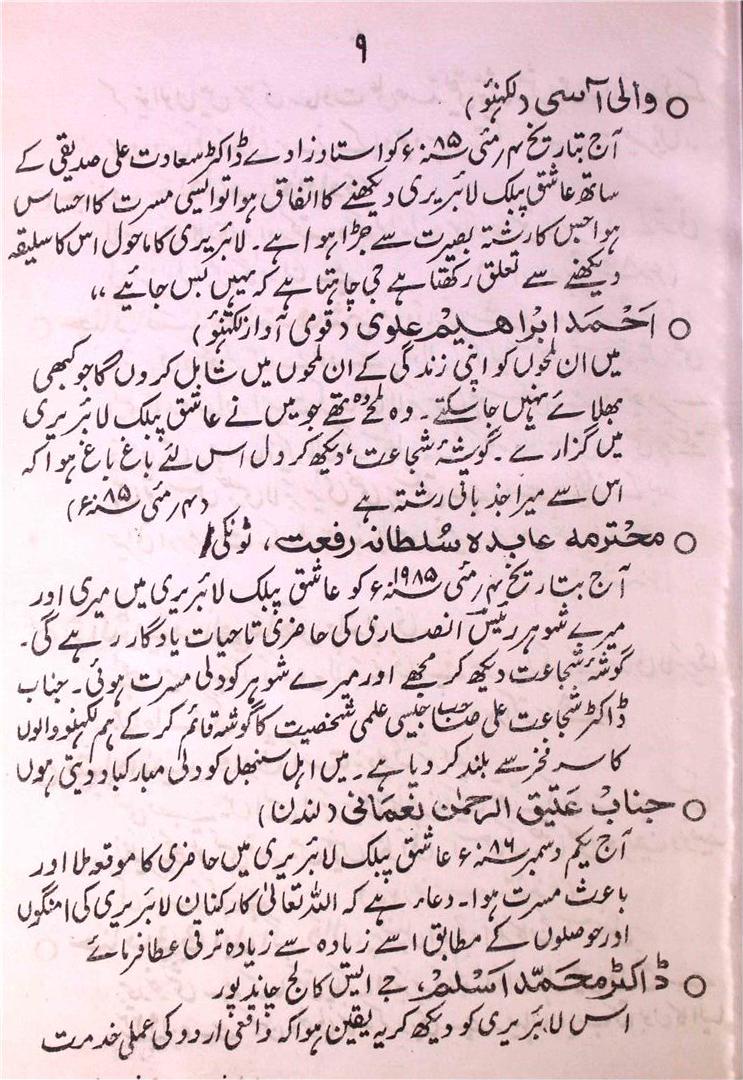 ۹
○ والی آسی (لکھنؤ)
آج بتاریخ ۴؍مئی ۸۵ء کو استاد زادے ڈاکٹر سعادت علی صدیقی کے
ساتھ عاشق پبلک لائبریری دیکھنے کا اتفاق ہوا تو ایسی مسرت کا احساس
ہوا جس کا رشتہ بصیرت سے جڑا ہوا ہے۔ لائبریری کا ماحول اس کا سلیقہ
دیکھنے سے تعلق رکھتا ہے جی چاہتا ہے کہ یہیں بس جائیے ،،
○ احمد ابراہیم علوی (قومی آواز لکھنؤ)
میں ان لمحوں کو اپنی زندگی کے ان لمحوں میں شامل کروں گا جو کبھی
بھلائے نہیں جا سکتے۔ وہ لمحے وہ تھے جو میں نے عاشق پبلک لائبریری
میں گزارے۔ گوشۂ شجاعت، دیکھ کر دل اس لئے باغ باغ ہوا کہ
اس سے میرا جذباتی رشتہ ہے (۴؍مئی ۸۵ء)
○ محترمہ عابدہ سلطانہ رفعت، ٹونکی
آج بتاریخ ۴؍مئی ۱۹۸۵ء کو عاشق پبلک لائبریری میں میری اور
میرے شوہر رئیس انصاری کی حاضری تاحیات یادگار رہے گی۔
گوشۂ شجاعت دیکھ کر مجھے اور میرے شوہر کو دلی مسرت ہوئی۔ جناب
ڈاکٹر شجاعت علی صاحب جیسی علمی شخصیت کا گوشہ قائم کر کے ہم لکھنو والوں
کا سر فخر سے بلند کر دیا ہے۔ میں اہل سنبھل کو دلی مبارکباد دیتی ہوں
○ جناب عتیق الرحمٰن نعمانی (لندن)
آج یکم دسمبر ۸۶ء عاشق پبلک لائبریری میں حاضری کا موقعہ ملا اور
باعث مسرت ہوا۔ دعاء ہے کہ اللہ تعالیٰ کارکنان لائبریری کی امنگوں
اور حوصلوں کے مطابق اسے زیادہ سے زیادہ ترقی عطا فرمائے
○ ڈاکٹر محمّد اسلم، جے ایس کالج چاند پور
اس لائبریری کو دیکھ کر یہ یقین ہوا کہ واقعی اردو کی عملی خدمت